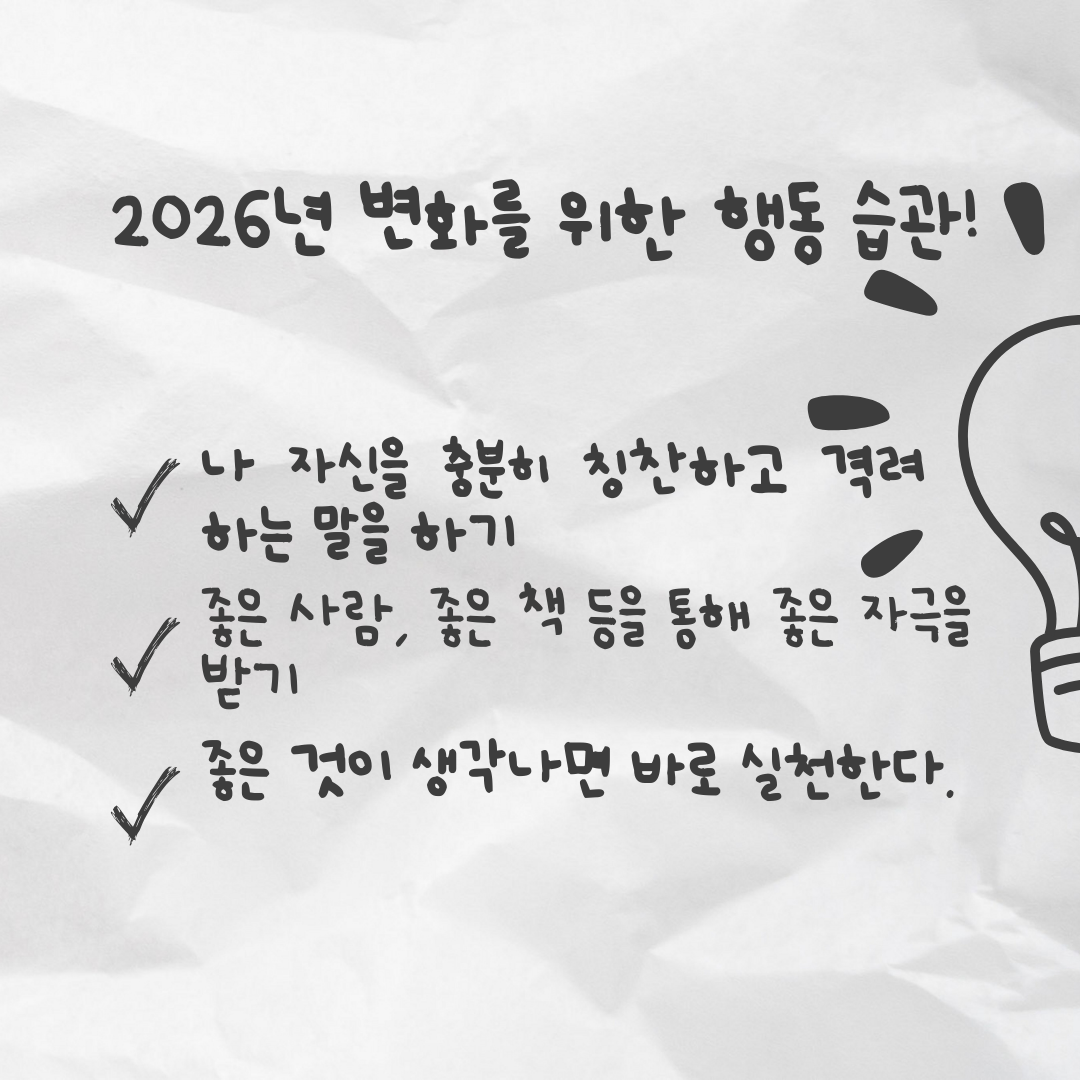 2026년 변화를 위한 행동 습관!
나 자신을 충분히 칭찬하고 격려
하는 말을 하기
좋은 사람, 좋은 책 등을 통해 좋은 자극을
받기
좋은 것이 생각나면 바로 실천한다.